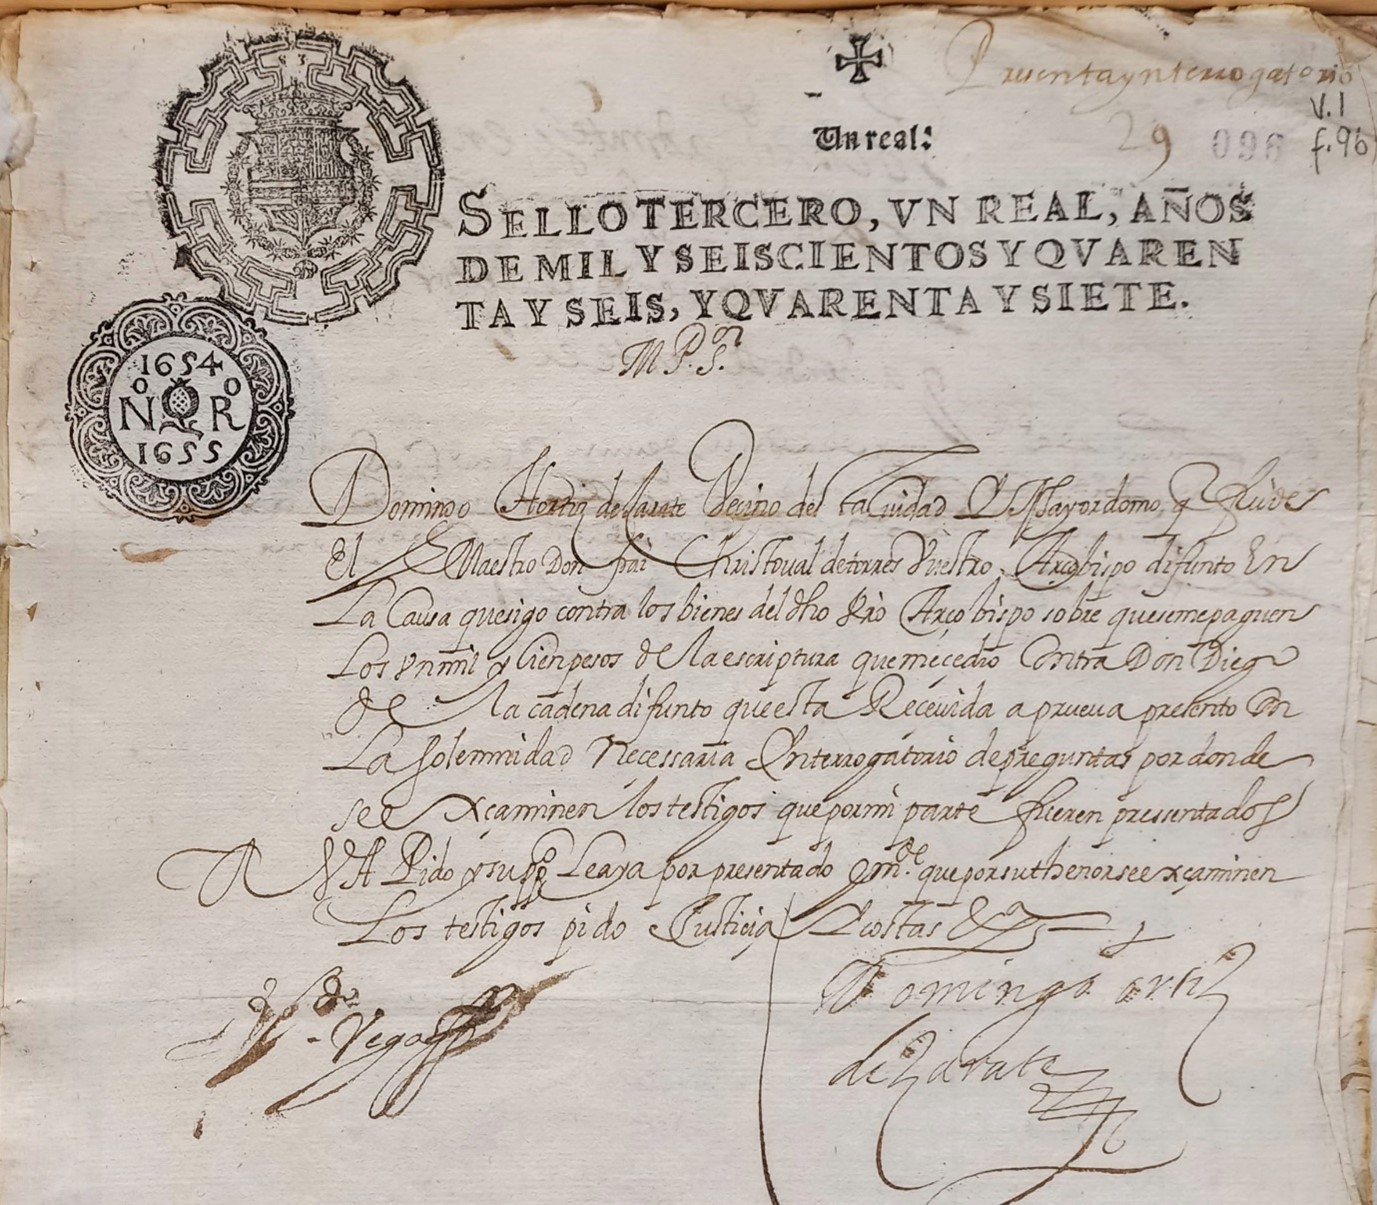 Presentaynterrogatorio
V.1
Un real:
29 096 f.96
SELLO TERCERO, VN REAL, AÑOS
DE MIL Y SEISCIENTOS Y QVAREN
TA Y SEIS, Y QVARENTA Y SIETE.
M P. S.or
1654
NoQRo
1655
Domingo Hortiz de Çarate Vecino desta Ciudad Y Mayordomo q fui des
El Maestro Don frai Christoual de torres Vuestro Arçobispo difunto En
La Causa que sigo contra los bienes del dho Rdo Arçobispo sobre que se me paguen
Los Vn mil y Cien pesos de la escriptura que me çedio Contra Don Diego
de la cadena difunto que esta Reçeuida a prueua presento Con
La solemnidad Necessaria Interrogatorio de preguntas por donde
se exçaminen los testigos que por mi parte fueren presentados
A VA Pido y suppco Le aya por presentado y mde que por su thenor se exçaminen
Los testigos pido Justicia Y costas &a
Domingo ortiz
de Zarate
Vega